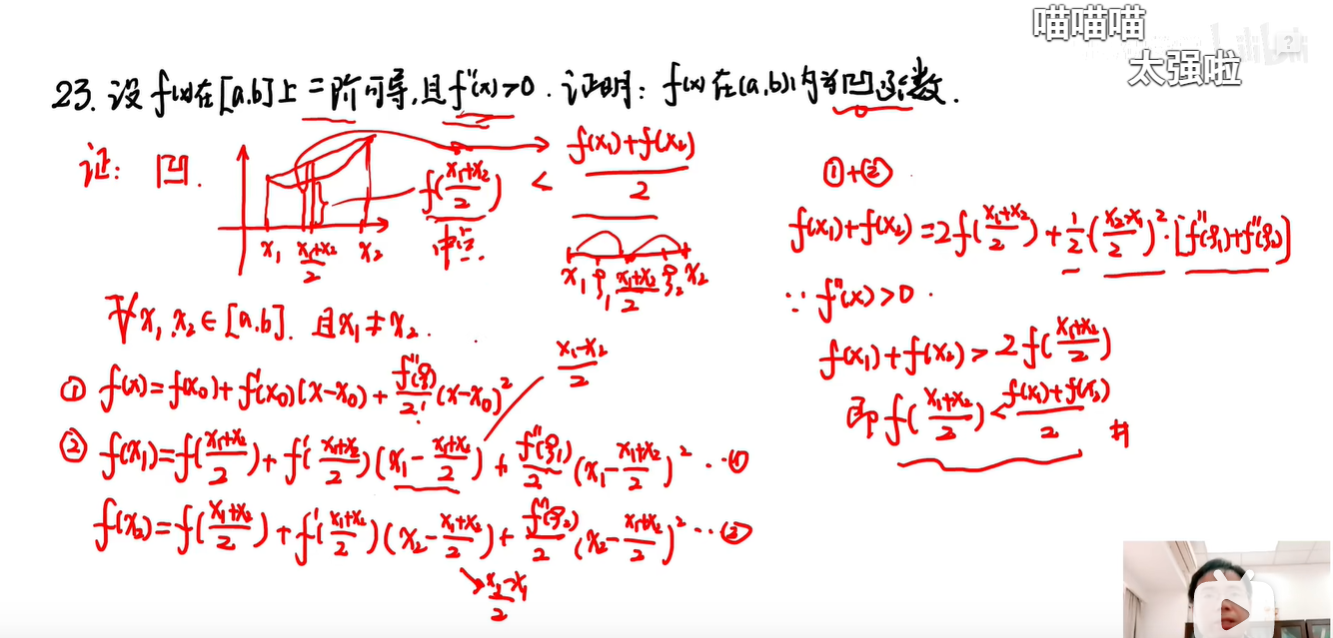 喵喵喵
太强啦
23. 设 f(x)在[a.b]上二阶可导,且f''(x)>0. 证明: f(x)在(a,b)内为凹函数.
证: 凹.
f((x₁+x₂)/2) < (f(x₁)+f(x₂))/2
中点.
x₁ (x₁+x₂)/2 x₂
x₁ ξ₁ (x₁+x₂)/2 ξ₂ x₂
∀x₁,x₂∈[a.b]. 且x₁≠x₂.
① f(x)=f(x₀)+f'(x₀)(x-x₀)+f''(ξ)/2!(x-x₀)²
(x₁-x₂)/2
② f(x₁)=f((x₁+x₂)/2)+f'((x₁+x₂)/2)(x₁-(x₁+x₂)/2)+f''(ξ₁)/2(x₁-(x₁+x₂)/2)²…①
f(x₂)=f((x₁+x₂)/2)+f'((x₁+x₂)/2)(x₂-(x₁+x₂)/2)+f''(ξ₂)/2(x₂-(x₁+x₂)/2)²…②
(x₂-x₁)/2
①+②
f(x₁)+f(x₂)=2f((x₁+x₂)/2)+1/2·((x₂-x₁)/2)²·[f''(ξ₁)+f''(ξ₂)]
∵f''(x)>0.
f(x₁)+f(x₂)>2f((x₁+x₂)/2)
即f((x₁+x₂)/2)<(f(x₁)+f(x₂))/2 #